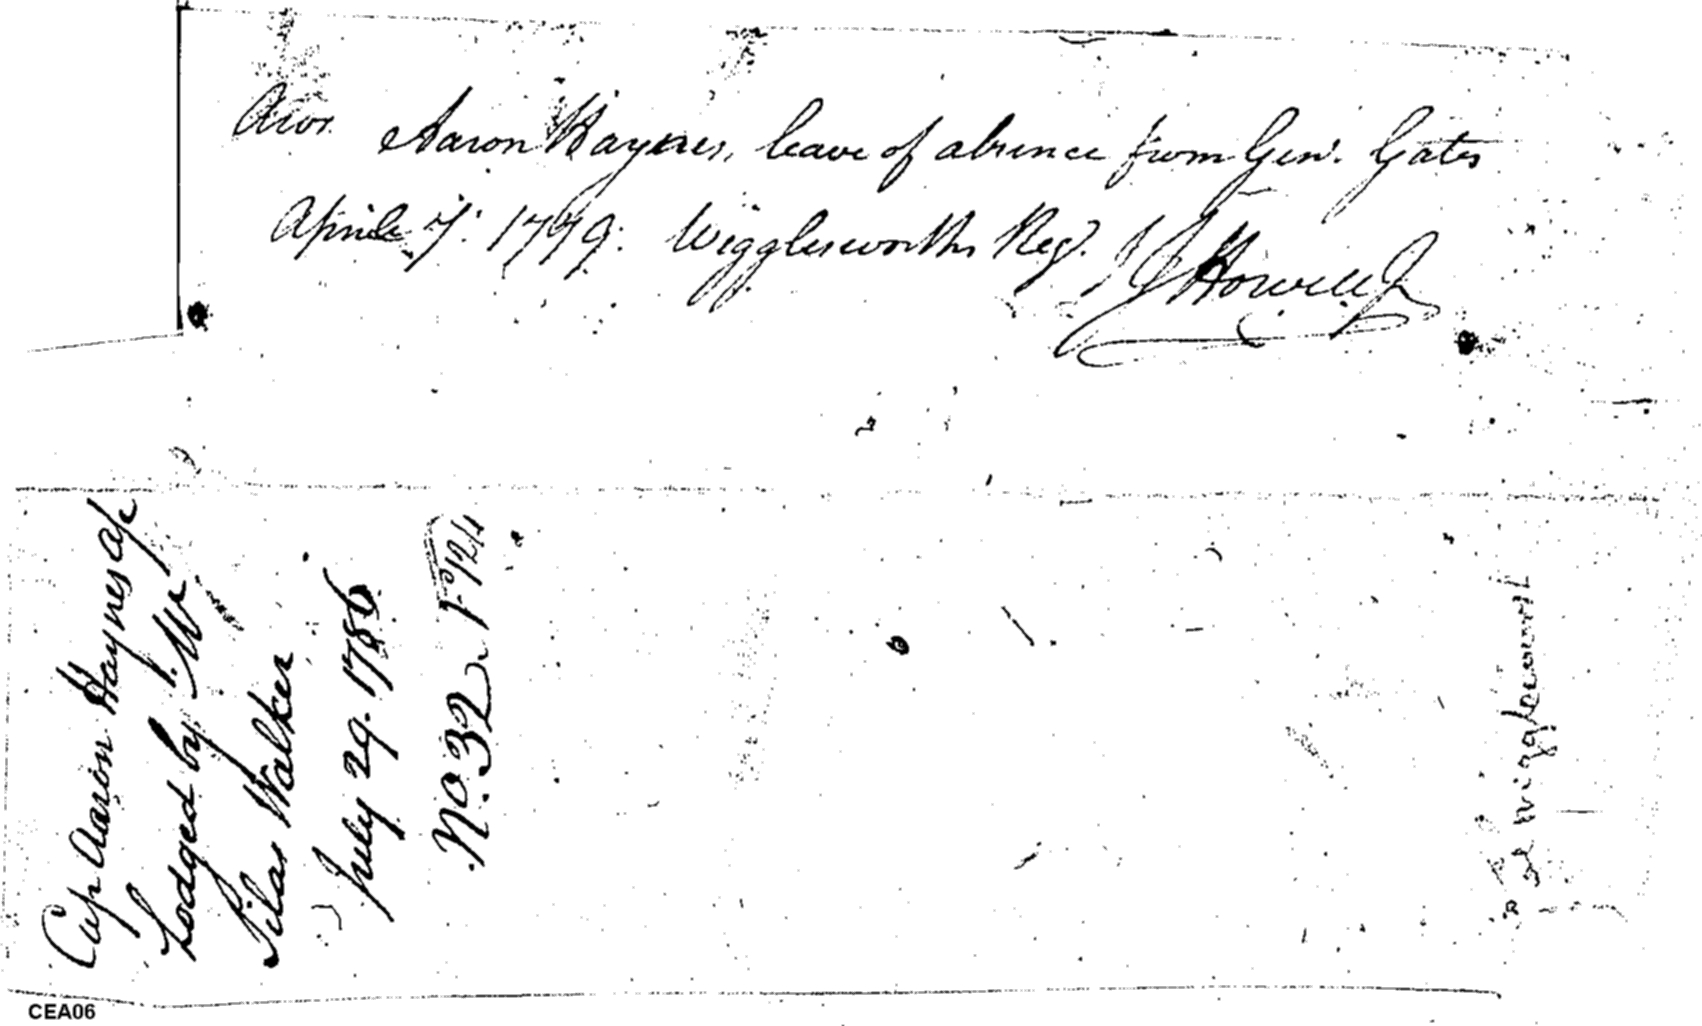 Aaron Haynes, leave of absence from Gen!. Gates
Aprile 7: 1779: Wigglesworths Reg!. J Howell J
Cap Aaron Haynes a/c
Lodged by
Silas Walker
July 29. 1786
No. 32 F 124
CEA06